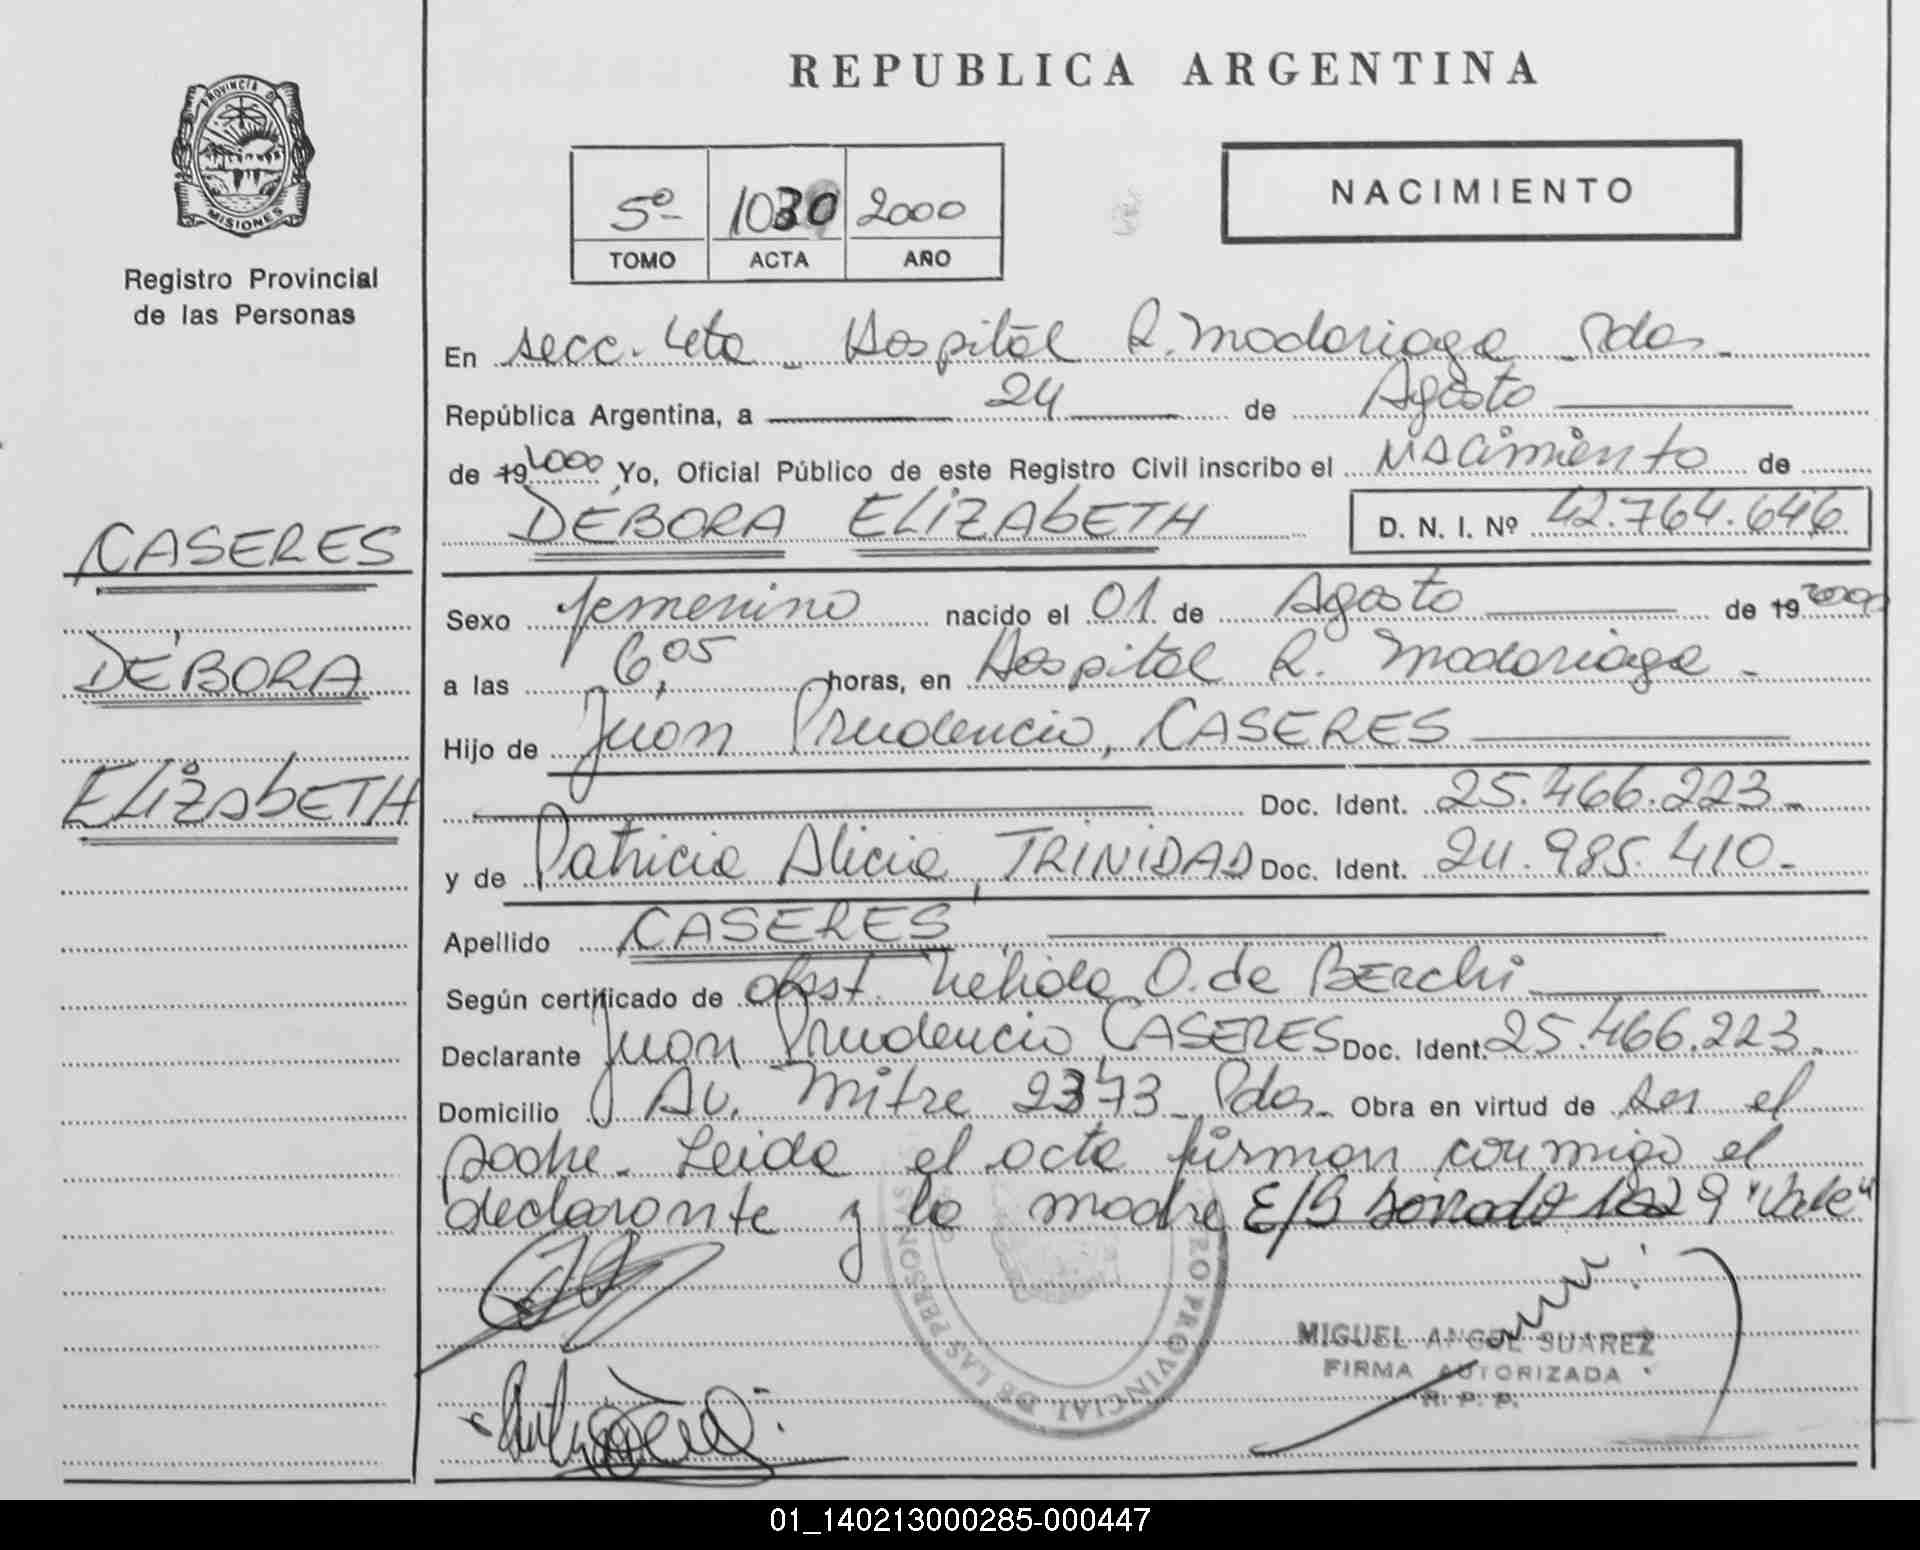 REPUBLICA ARGENTINA
PROVINCIA DE
MISIONES
Registro Provincial
de las Personas
5º 1030 2000
TOMO ACTA AÑO
NACIMIENTO
En secc. 4ta - Hospital R. Madariaga - Pdas -
República Argentina, a 24 de Agosto
de 19 2000 Yo, Oficial Público de este Registro Civil inscribo el Nacimiento de
DÉBORA ELIZAbETH D. N. I. Nº 42.764.646
CASERES
DÉBORA
ELIZAbETH
Sexo femenino nacido el 01 de Agosto de 19 2000
a las 6,05 horas, en Hospital R. Madariaga -
Hijo de Juan Prudencio, CASERES
Doc. Ident. 25.466.223 -
y de Patricia Alicia, TRINIDAD Doc. Ident. 24.985.410 -
Apellido CASERES
Según certificado de obst. Nelida O. de BERchi
Declarante Juan Prudencio, CASERES Doc. Ident. 25.466.223 -
Domicilio Av. Mitre 2373 - Pdas - Obra en virtud de ser el
padre - Leida el acta firman conmigo el
declarante y la madre E/S borrado "Vale"
REGISTRO PROVINCIAL DE LAS PERSONAS
MIGUEL ANGEL SUAREZ
FIRMA AUTORIZADA
R. P. P.
01_140213000285-000447